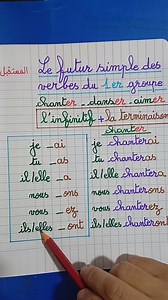 Le futur simple des
verbes du 1er groupe
chanter _ danser _ aimer
l'infinitif + la terminaison
chanter
je _ ai je chanterai
tu _ as tu chanteras
il/elle _ a il/elle chantera
nous _ ons nous chanterons
vous _ ez vous chanterez
ils/elles _ ont ils/elles chanteront